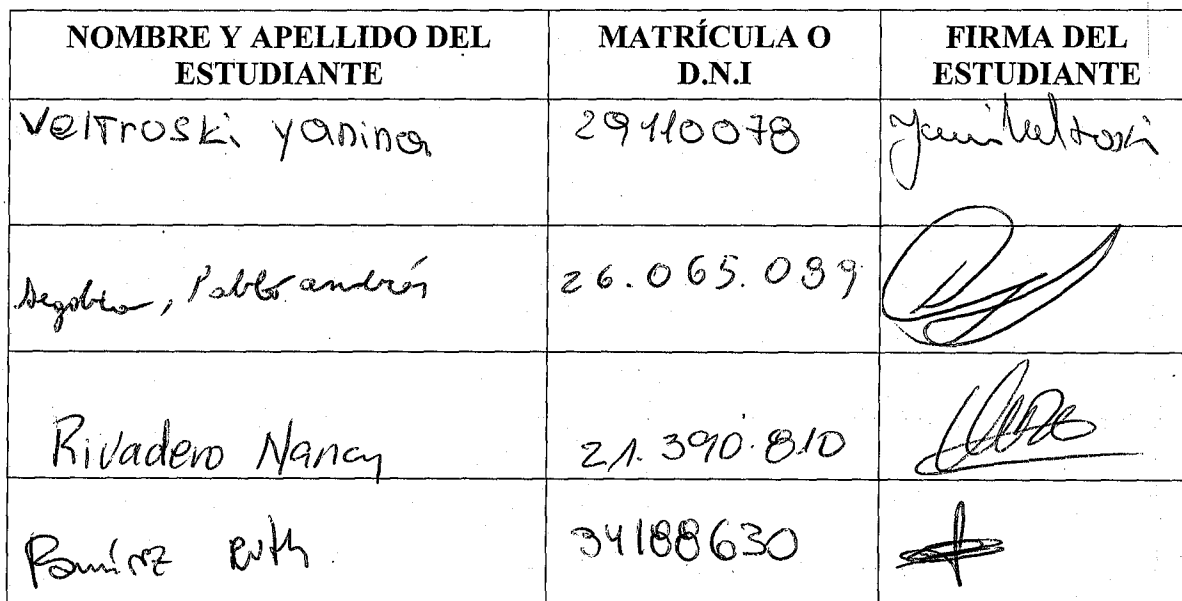 NOMBRE Y APELLIDO DEL ESTUDIANTE MATRÍCULA O D.N.I FIRMA DEL ESTUDIANTE
Veltroski Yanina 29110078 Yani Veltroski
Segobia, Pablo andrés 26.065.039
Rivadero Nancy 21.390.810
Ramírez Ruth 34188630